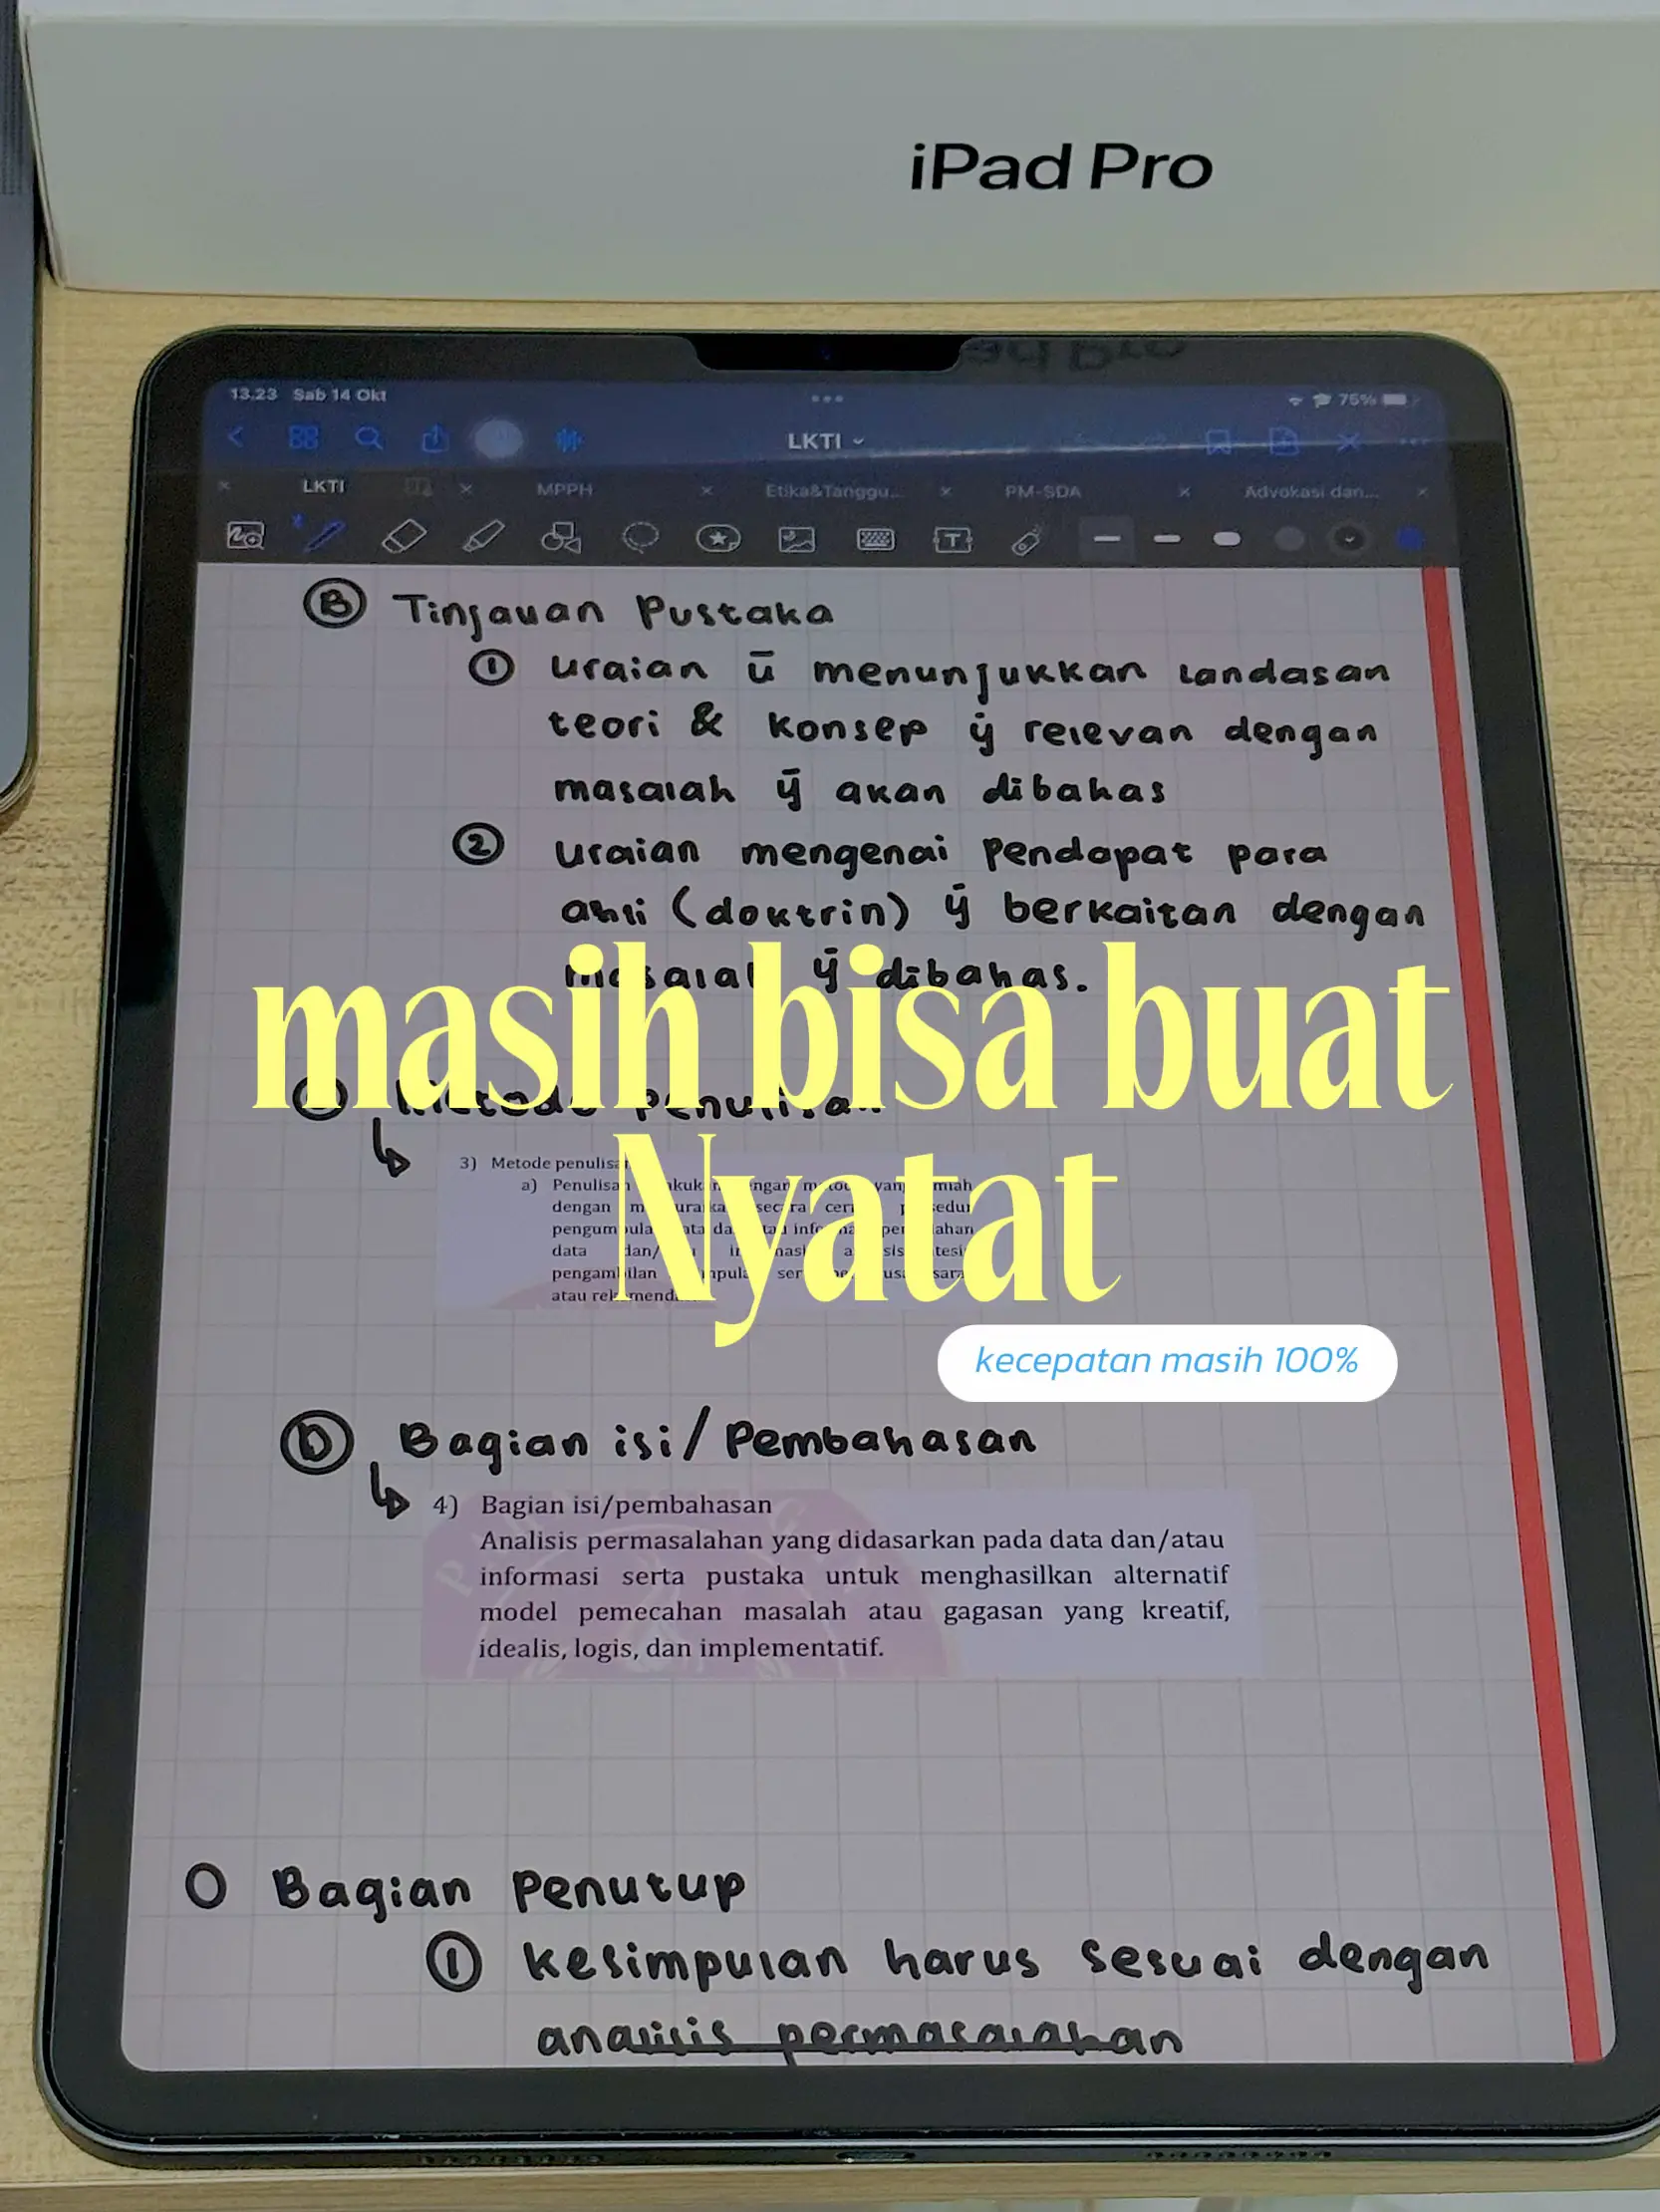 iPad Pro
13.23 Sab 14 Okt
75%
LKTI
LKTI
MPPH
Etika&Tanggu...
PM-SDA
Advokasi dan...
B Tinjauan Pustaka
1 uraian ū menunjukkan landasan
teori & konsep ȳ relevan dengan
masalah ȳ akan dibahas
2 uraian mengenai pendapat para
ahli (doktrin) ȳ berkaitan dengan
masalah ȳ dibahas.
masih bisa buat
Metode Penulisan
3) Metode penulisan
a) Penulisan
dengan
data
Nyatat
kecepatan masih 100%
D Bagian isi/Pembahasan
4) Bagian isi/pembahasan
Analisis permasalahan yang didasarkan pada data dan/atau
informasi serta pustaka untuk menghasilkan alternatif
model pemecahan masalah atau gagasan yang kreatif,
idealis, logis, dan implementatif.
Bagian Penutup
1 kesimpulan harus sesuai dengan
analisis permasalahan